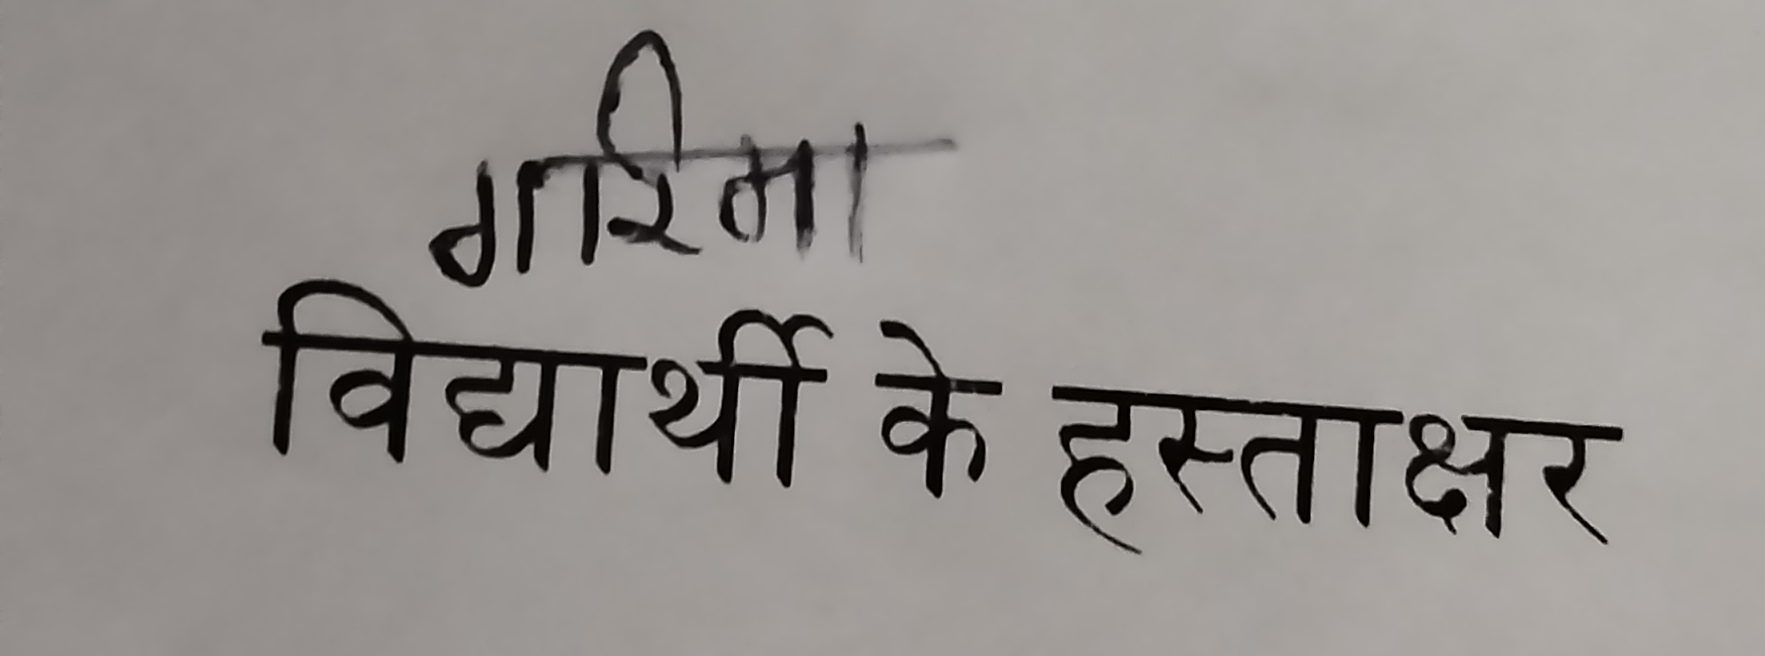 गरिमा
विद्यार्थी के हस्ताक्षर